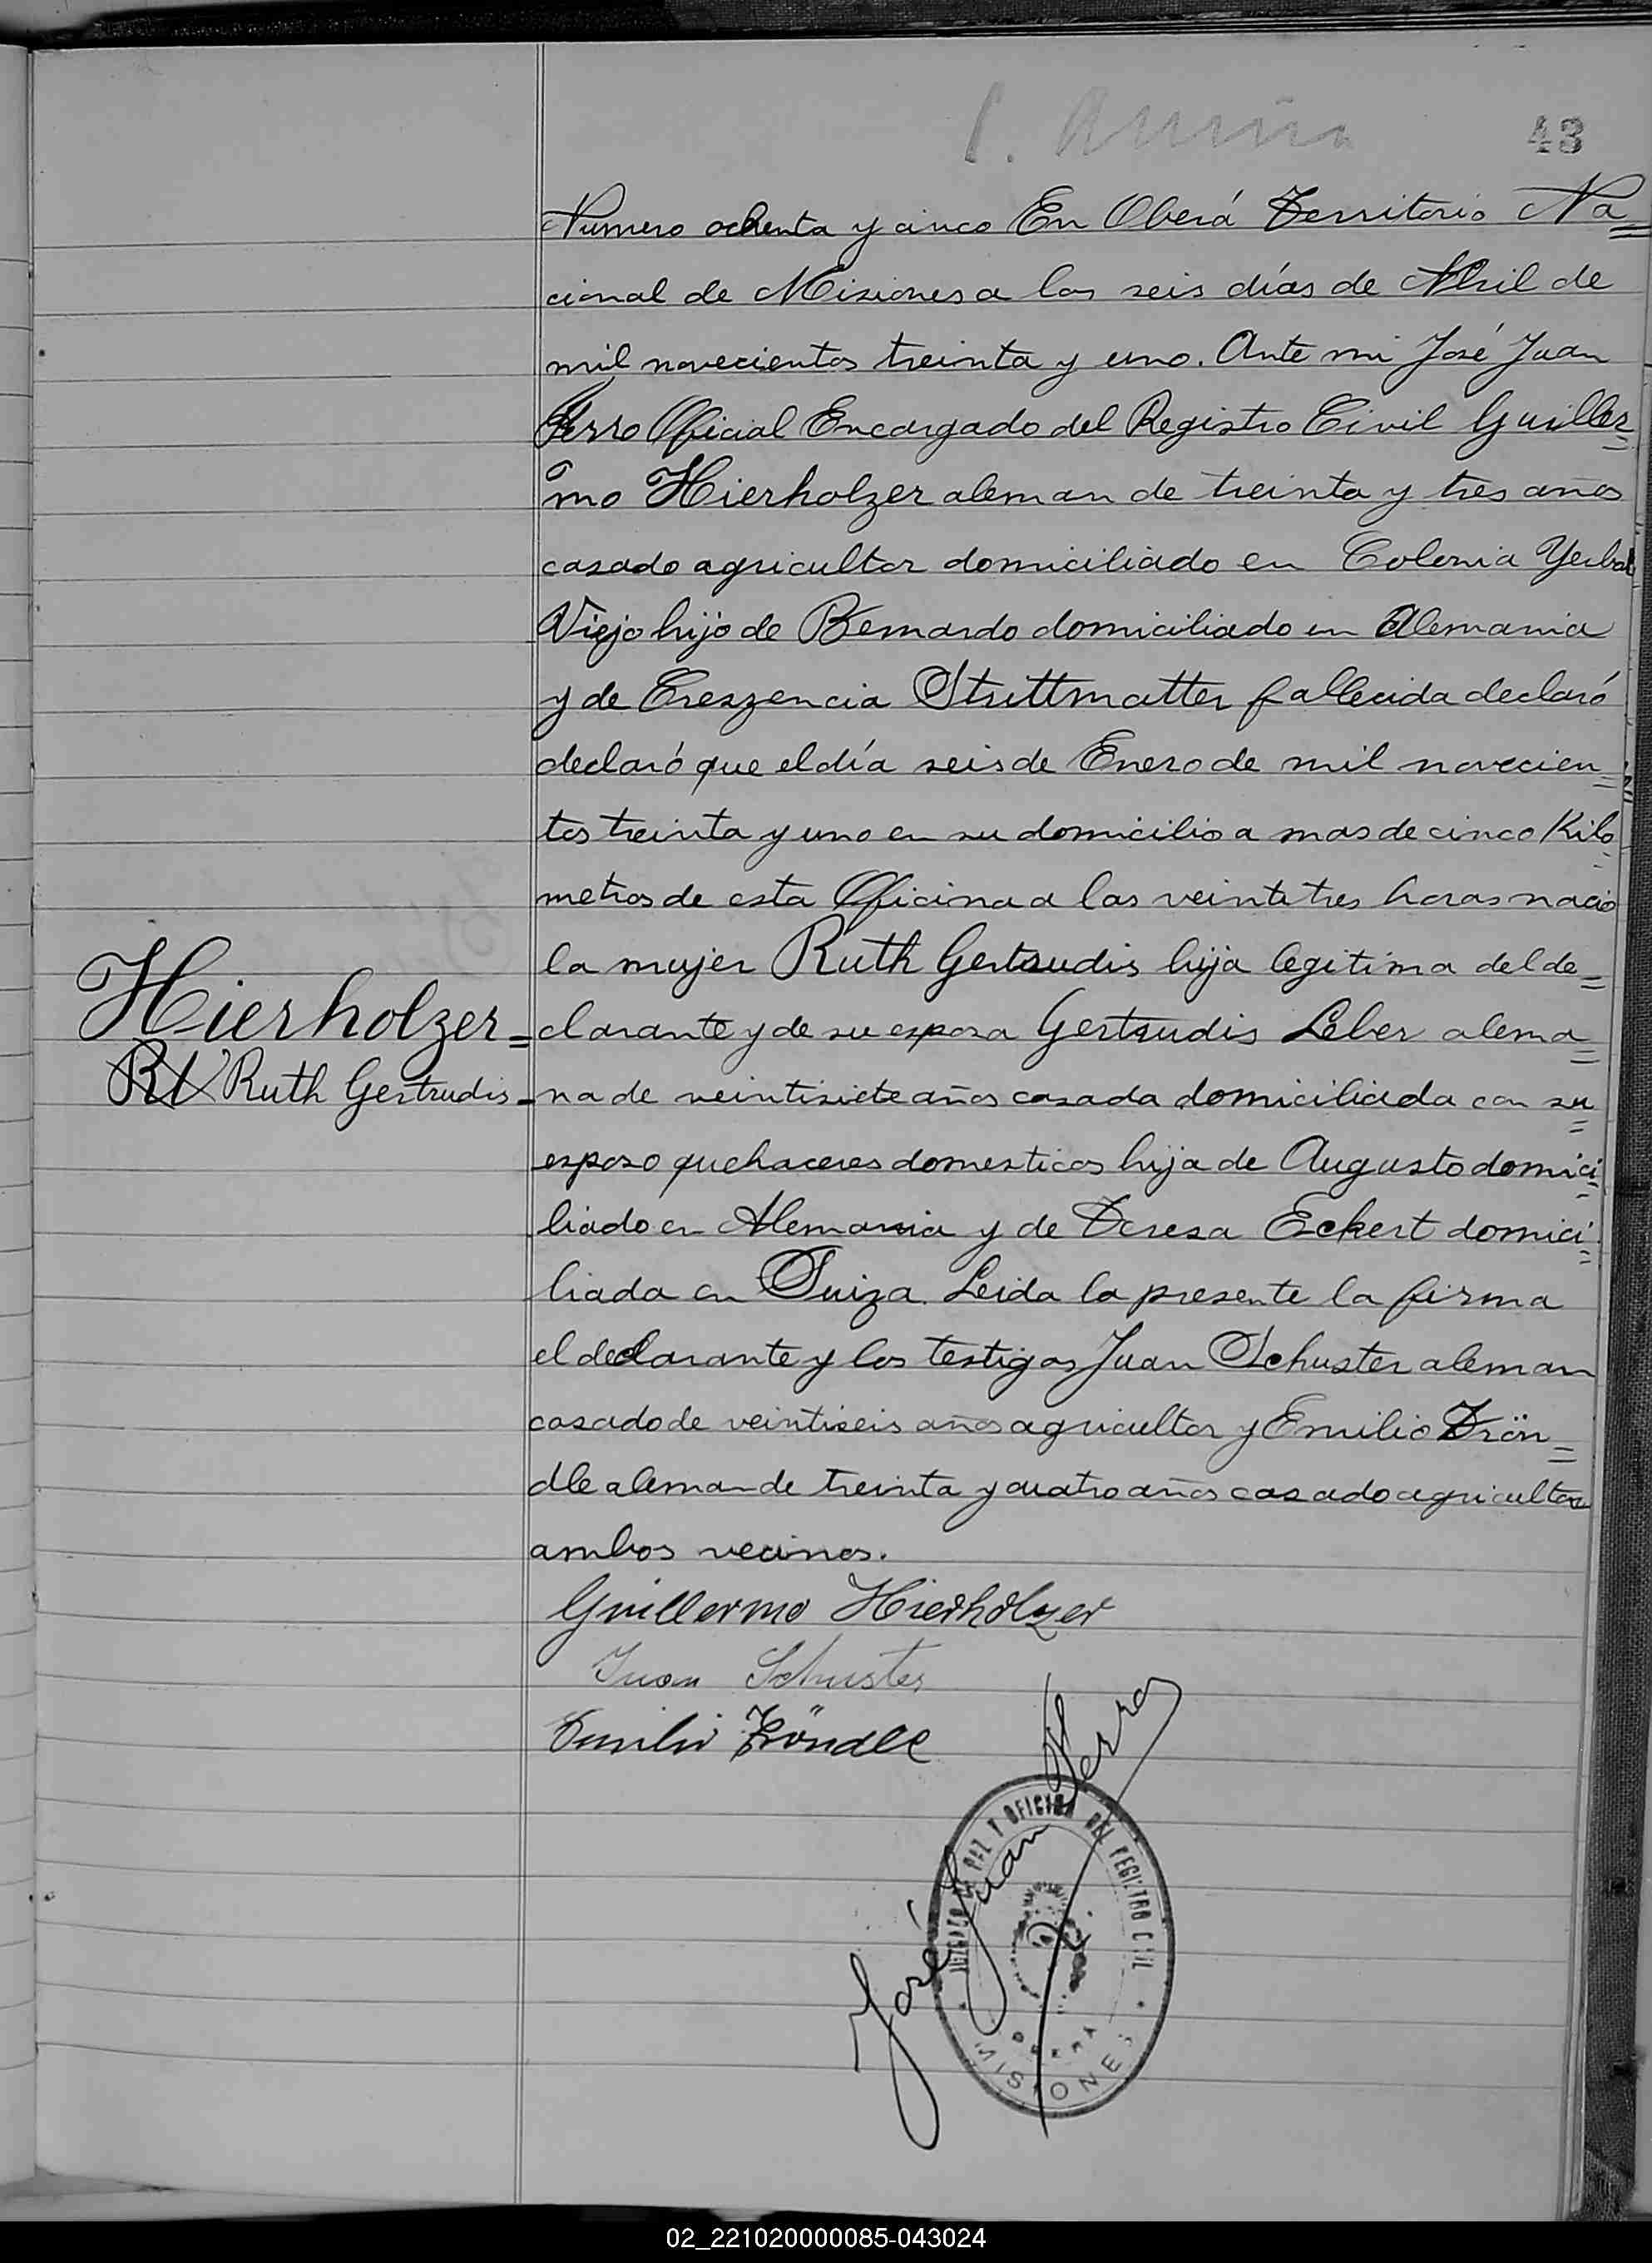 43
Numero ochenta y cinco En Oberá Territorio Na=
cional de Misiones a los seis días de Abril de
mil novecientos treinta y uno. Ante mi José Juan
Ferro Oficial Encargado del Registro Civil Guiller=
mo Hierholzer aleman de treinta y tres años
casado agricultor domiciliado en Colonia Yerbal
Viejo hijo de Bernardo domiciliado en Alemania
y de Creszencia Strittmatter fallecida declaró
declaró que el día seis de Enero de mil novecien=
tos treinta y uno en su domicilio a mas de cinco Kilo=
metros de esta Oficina a las veintitres horas nació
la mujer Ruth Gertrudis hija legitima del de=
Hierholzer=
clarante y de su esposa Gertrudis Leber alema=
Ruth Gertrudis=
na de veintisiete años casada domiciliada con su=
esposo quehaceres domesticos hija de Augusto domici=
liado en Alemania y de Teresa Eckert domici=
liada en Suiza. Leida la presente la firma
el declarante y los testigos Juan Schuster aleman
casado de veintiseis años agricultor y Emilio Trön=
dle aleman de treinta y cuatro años casado agricultor
ambos vecinos.
Guillermo Hierholzer
Juan Schuster
Emilio Tröndle
José Juan Ferro
JUZGADO DE PAZ Y OFICINA DEL REGISTRO CIVIL
OBERA
MISIONES
02_221020000085-043024